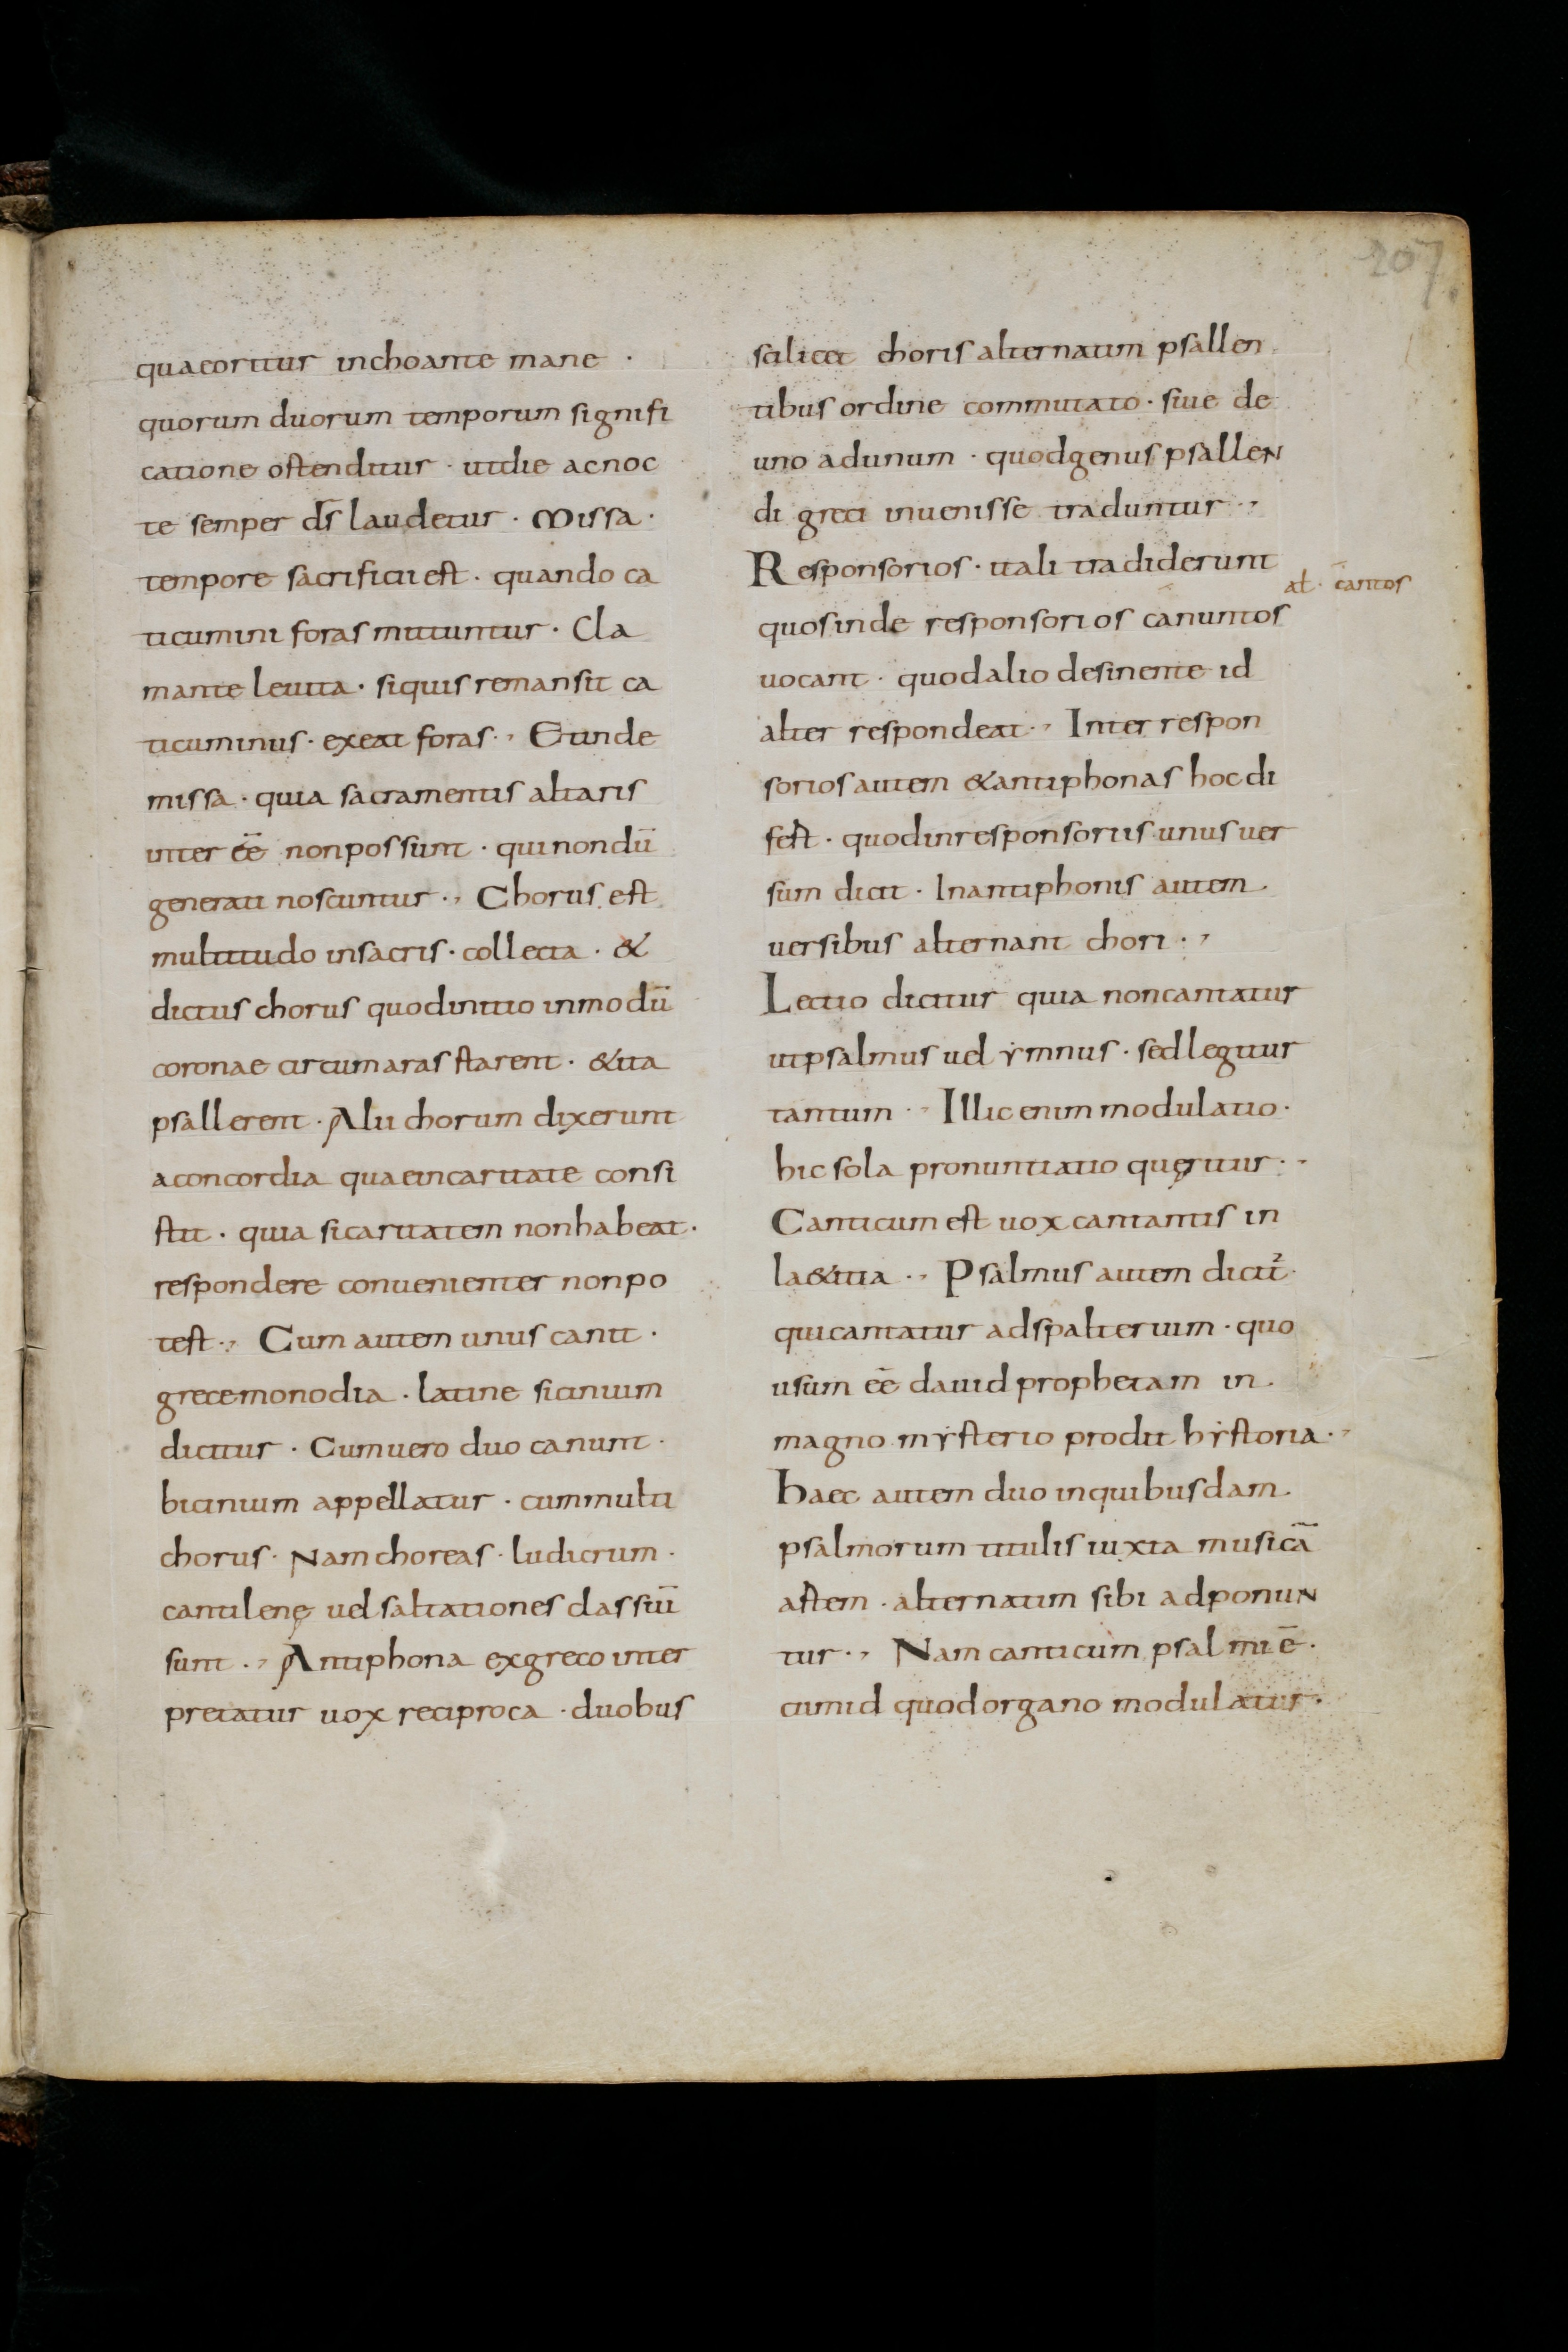 207
quaeoritur inchoante mane ·
quorum duorum temporum signifi
catione ostenditur · utdie acnoc
te semper d̅s laudetur · Missa ·
tempore sacrificii est · quando ca
ticumini foras mittuntur · Cla
mante leuita · siquis remansit ca
ticuminus · exeat foras ·, Etinde
missa · quia sacramentis altaris
inter ee̅ nonpossunt · quinondu̅
generati noscuntur ·, Chorus est
multitudo insacris · collecta · &
dictus chorus quodinitio inmodu̅
coronae circumaras starent · &ita
psallerent · Alii chorum dixerunt
aconcordia quaeincaritate consi
stit · quia sicaritatem nonhabeat ·
respondere conuenienter nonpo
test ·, Cum autem unus canit ·
grecemonodia · latine sicinium
dicitur · Cumuero duo canunt ·
bicinium appellatur · cummulti
chorus · Nam choreas · ludicrum ·
cantilenę uel saltationes classiu̅
sunt ·, Antiphona exgreco inter
pretatur uox reciproca · duobus
scilicet choris alternatim psallen
tibus ordine commutato · siue de
uno adunum · quodgenus psalleN
di greci inuenisse traduntur ·,
Responsorios · itali tradiderunt
quosinde responsorios canuntos
al · cantos
uocant · quodalio desinente id
alter respondeat ·, Inter respon
sorios autem &antiphonas hoc di
fest · quodinresponsoriis unus uer
sum dicit · Inantiphonis autem
uersibus alternant chori ·,
Lectio dicitur quia noncantatur
utpsalmus uel ymnus · sedlegitur
tantum ·, Illic enim modulatio ·
hic sola pronuntiatio quęritur ·,
Canticum est uox cantantis in
la&itia ·, Psalmus autem dicit̉ ·
quicantatur adspalterium · quo
usum ee̅ dauid prophetam in
magno mysterio prodit hystoria ·,
haec autem duo inquibusdam
psalmorum titulis iuxta musica̅
astem · alternatim sibi adponuN
tur ·, Nam canticum psalmi e̅ ·
cumid quodorgano modulatur ·